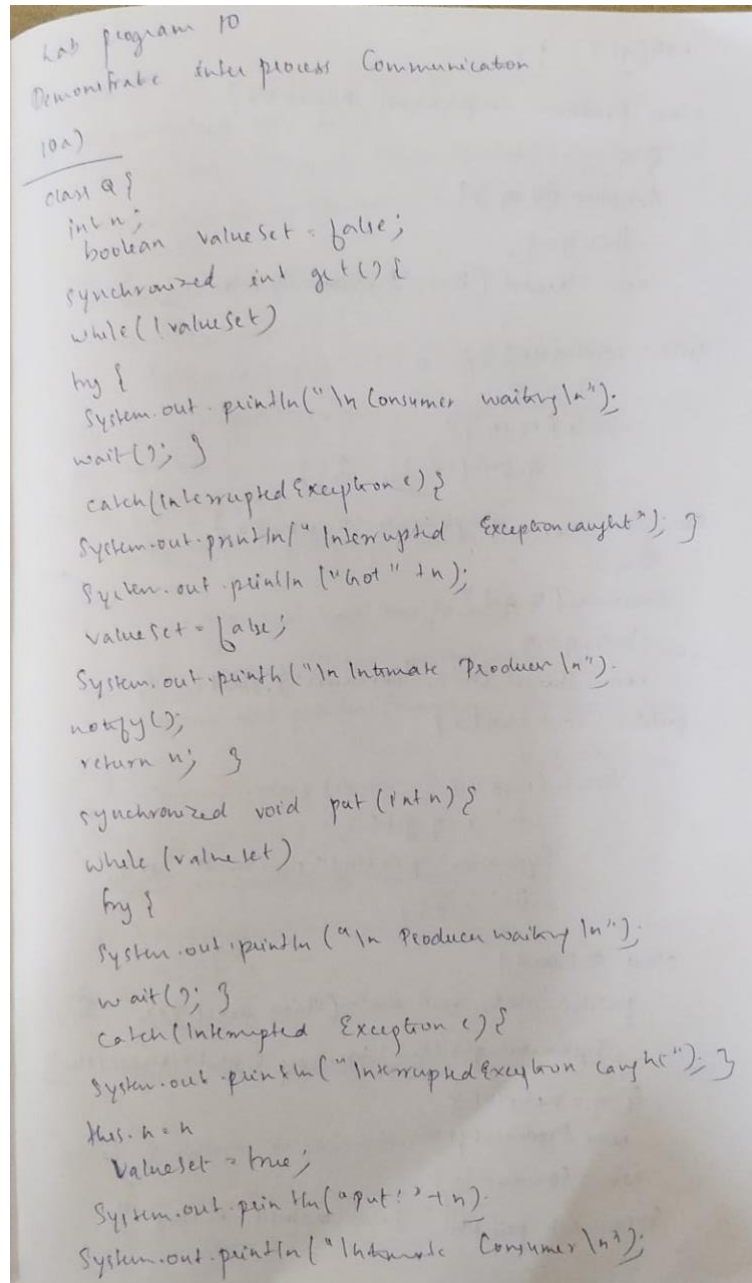 Lab program 10
Demonstrate Inter process Communication
10a)
class Q {
int n;
boolean valueSet = false;
synchronized int get() {
while(!valueSet)
try {
System.out.println("\n Consumer waiting \n");
wait(); }
catch(InterruptedException e) {
System.out.println("Interrupted Exception caught"); }
System.out.println("Got" +n);
valueSet = false;
System.out.println("\n Intimate Producer \n");
notify();
return n; }
synchronized void put (int n) {
while (valueset)
try {
System.out.println("\n Producer waiting \n");
wait(); }
catch(Interrupted Exception e) {
System.out.println("Interrupted Exception caught"); }
this.n = n
valueSet = true;
System.out.println("put:" +n);
System.out.println("Intimate Consumer \n");